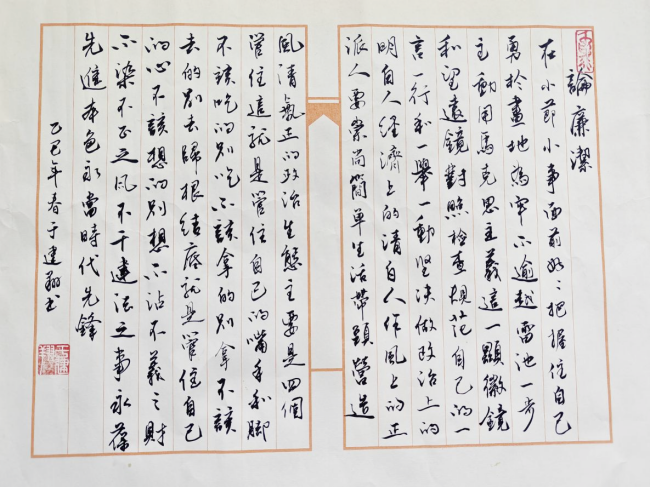 論廉潔
在小節小事面前好々把握住自己
勇於畫地為牢不逾越雷池一步
主動用馬克思主義這一顯微鏡
和望遠鏡對照檢查規范自己的一
言一行和一舉一動坚决做政治上的
明白人經濟上的清白人作風上的正
派人要崇尚簡單生活帶頭營造
風清氣正的政治生態主要是四個
管住這就是管住自己的嘴手和腳
不該吃的別吃不該拿的別拿不該
去的別去歸根結底就是管住自己
的心不該想的別想不沾不義之財
不染不正之風不干違法之事永葆
先進本色永當時代先鋒
乙巳年春于建翔书